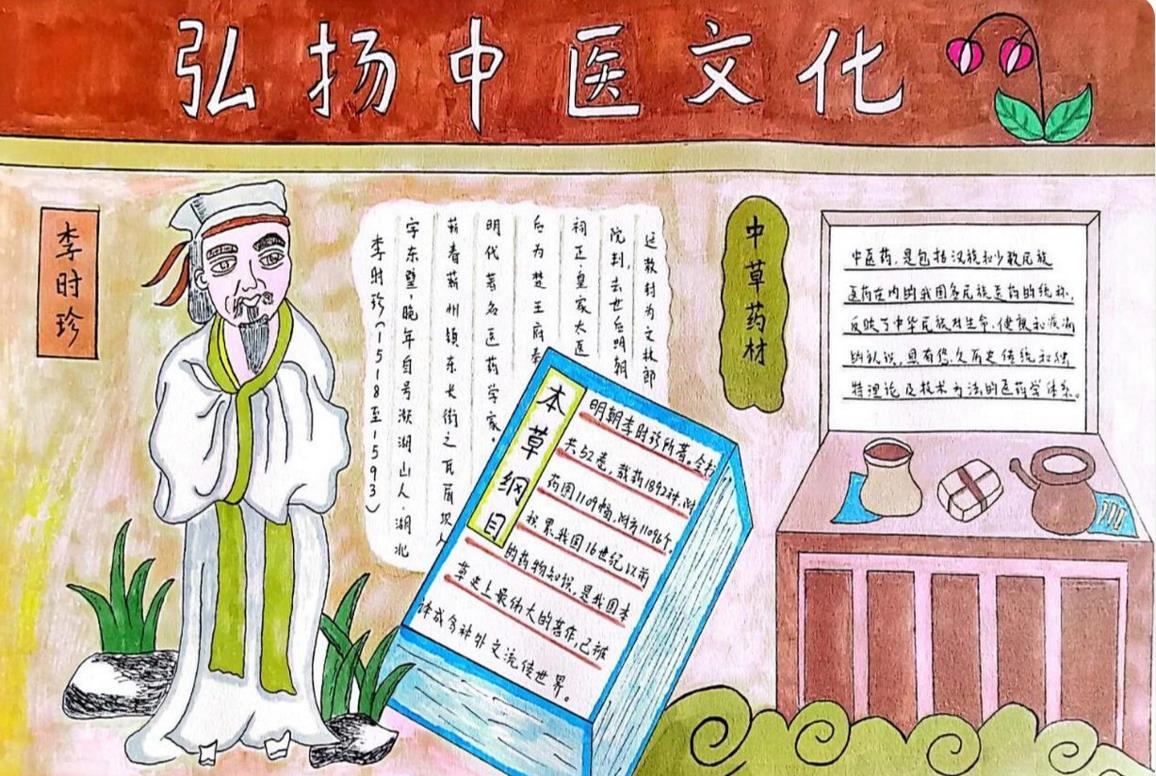 弘扬中医文化
李时珍
李时珍(1518至1593)
字东璧,晚年自号濒湖山人.湖北
蕲春蕲州镇东长街之瓦屑坝人
明代著名医药学家.
后为楚王府奉
祠正皇家太医
院判,去世后明朝
廷敕封为文林郎
本草纲目
明朝李时珍所著.全书
共52卷,载药1892种,附
药图1109幅,附方11096个.
积累我国16世纪以前
的药物知识,是我国本
草史上最伟大的著作,已被
译成多种外文流传世界。
中草药材
中医药,是包括汉族和少数民族
医药在内的我国多民族医药的统称,
反映了中华民族对生命,健康和疾病
的认识,具有悠久历史传统和独
特理论及技术方法的医药学体系。